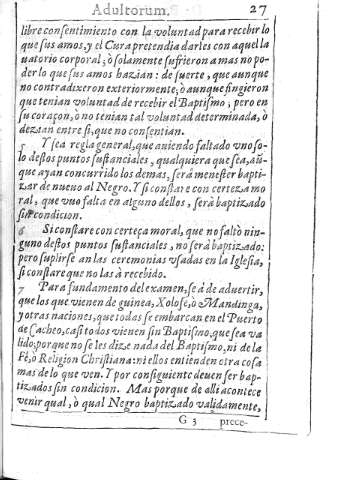 Adultorum. 27
libre consentimiento con la voluntad para recebir lo
que sus amos, y el Cura pretendia darles con aquel la
uatorio corporal; ò solamente sufrieron a mas no po-
der lo que sus amos hazian: de suerte, que aunque
no contradixeron exteriormente; ò aunque fingieron
que tenian voluntad de recebir el Baptismo, pero en
su coraçon, ò no tenian tal voluntad determinada, ò
dezian entre si, que no consentian.
5 Y sea regla general, que auiendo faltado vno so-
lo destos puntos sustanciales, qualquiera que sea, aũ-
que ayan concurrido los demas, serà menester bapti-
zar de nueuo al Negro. Y si constare con certeza mo
ral, que vuo falta en alguno dellos, serà baptizado
sin condicion.
6 Si constare con certeça moral, que no faltò nin-
guno destos puntos sustanciales, no serà baptizado:
pero suplirse an las ceremonias vsadas en la Iglesia,
si constare que no las à recebido.
7 Para fundamento del examen, se á de aduertir,
que los que vienen de guinea, Xolofe, ò Mandinga,
y otras naciones, que todas se embarcan en el Puerto
de Cacheo, casi todos vienen sin Baptismo, que sea va
lido; porque no se les dize nada del Baptismo, ni de la
Fè, o Religion Christiana: ni ellos entienden otra cosa
mas de lo que ven. Y por consiguiente deuen ser bap-
tizados sin condicion. Mas porque de alli acontece
venir qual, ò qual Negro baptizado validamente,
G 3 prece-